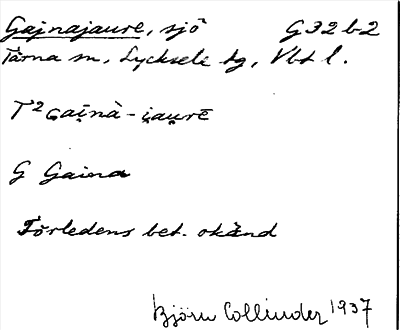 Gajnajaure, sjö G32b2
Tärna sn, Lycksele tg, Vbt l.
T² Gai̯nà-i̯au̯rē
G Gaina
Förledens bet. okänd
Björn Collinder 1937